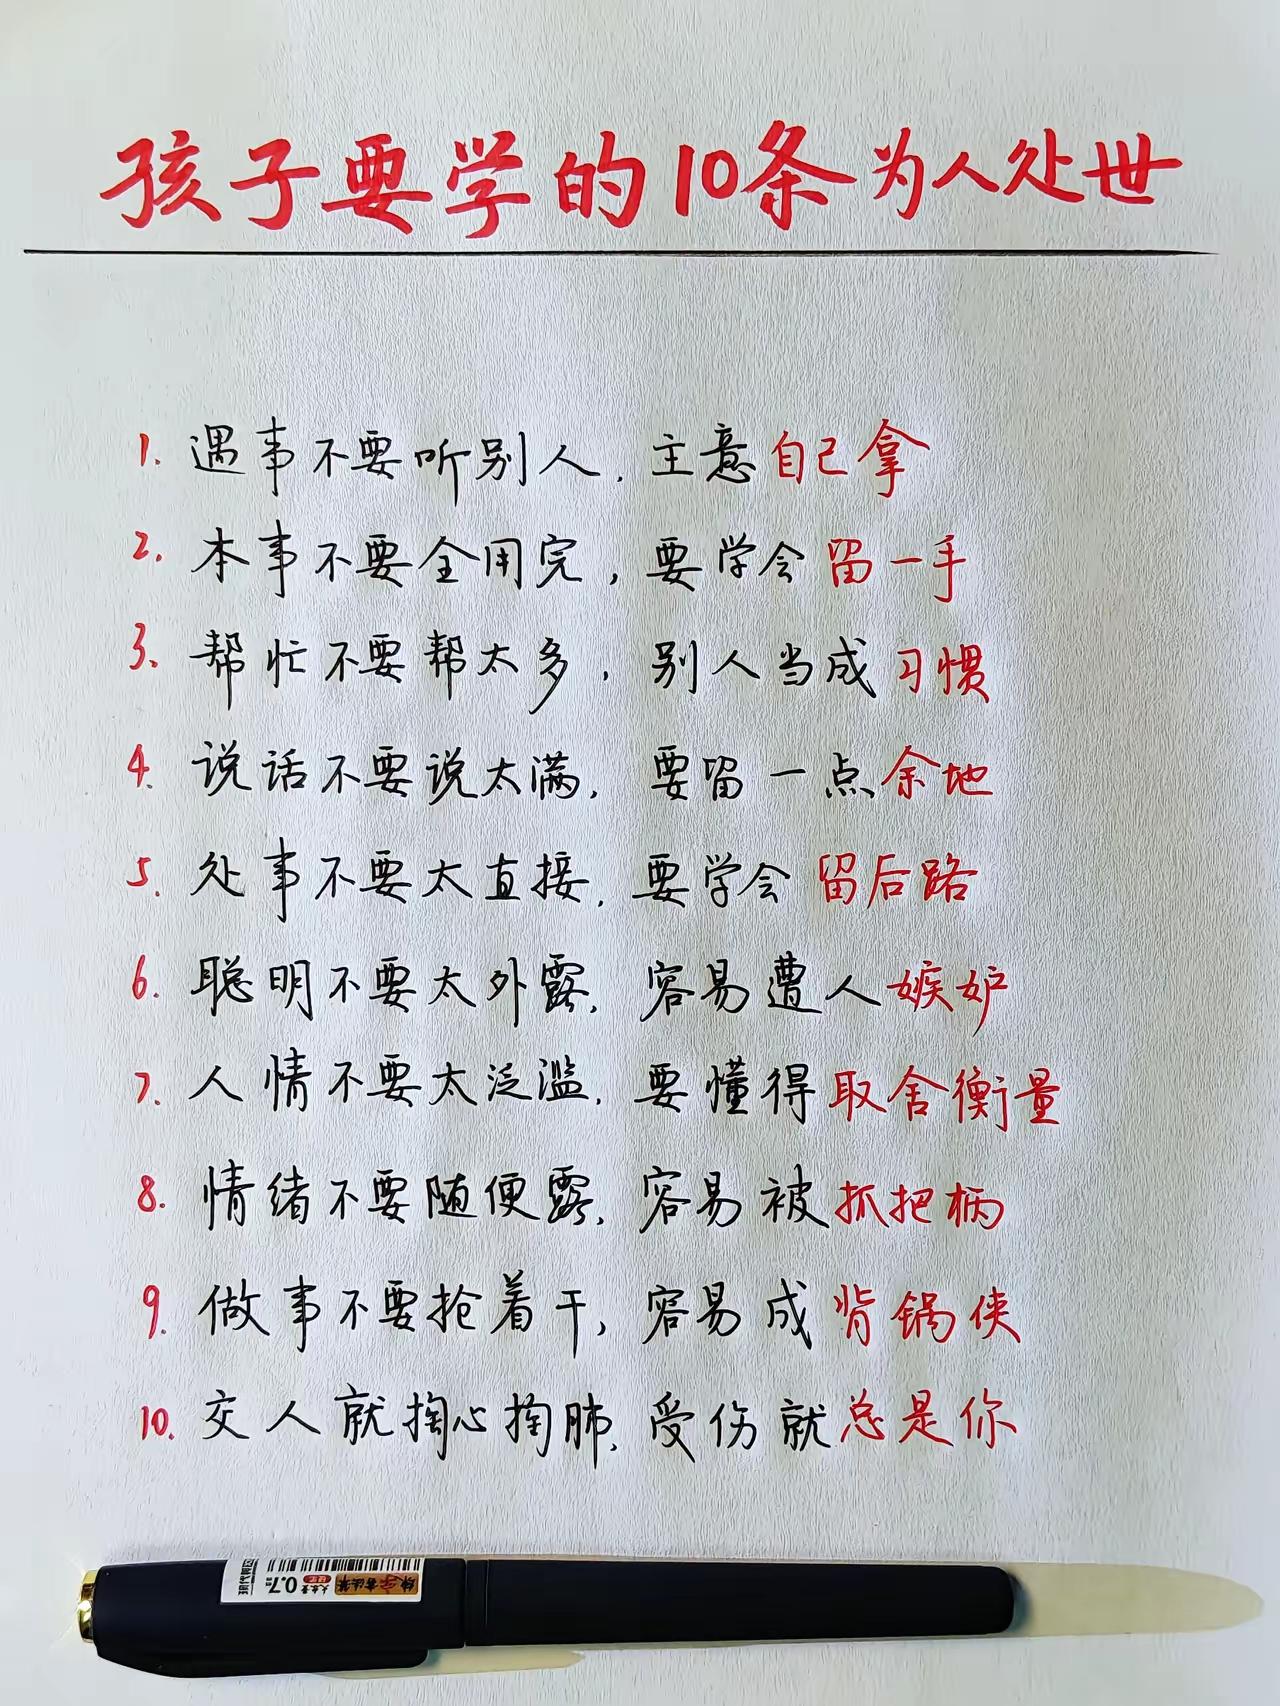 孩子要学的10条为人处世
1. 遇事不要听别人, 主意自己拿
2. 本事不要全用完, 要学会留一手
3. 帮忙不要帮太多, 别人当成习惯
4. 说话不要说太满, 要留一点余地
5. 处事不要太直接, 要学会留后路
6. 聪明不要太外露, 容易遭人嫉妒
7. 人情不要太泛滥, 要懂得取舍衡量
8. 情绪不要随便露, 容易被抓把柄
9. 做事不要抢着干, 容易成背锅侠
10. 交人就掏心掏肺, 受伤就总是你
0.7
大容量
练字書法筆